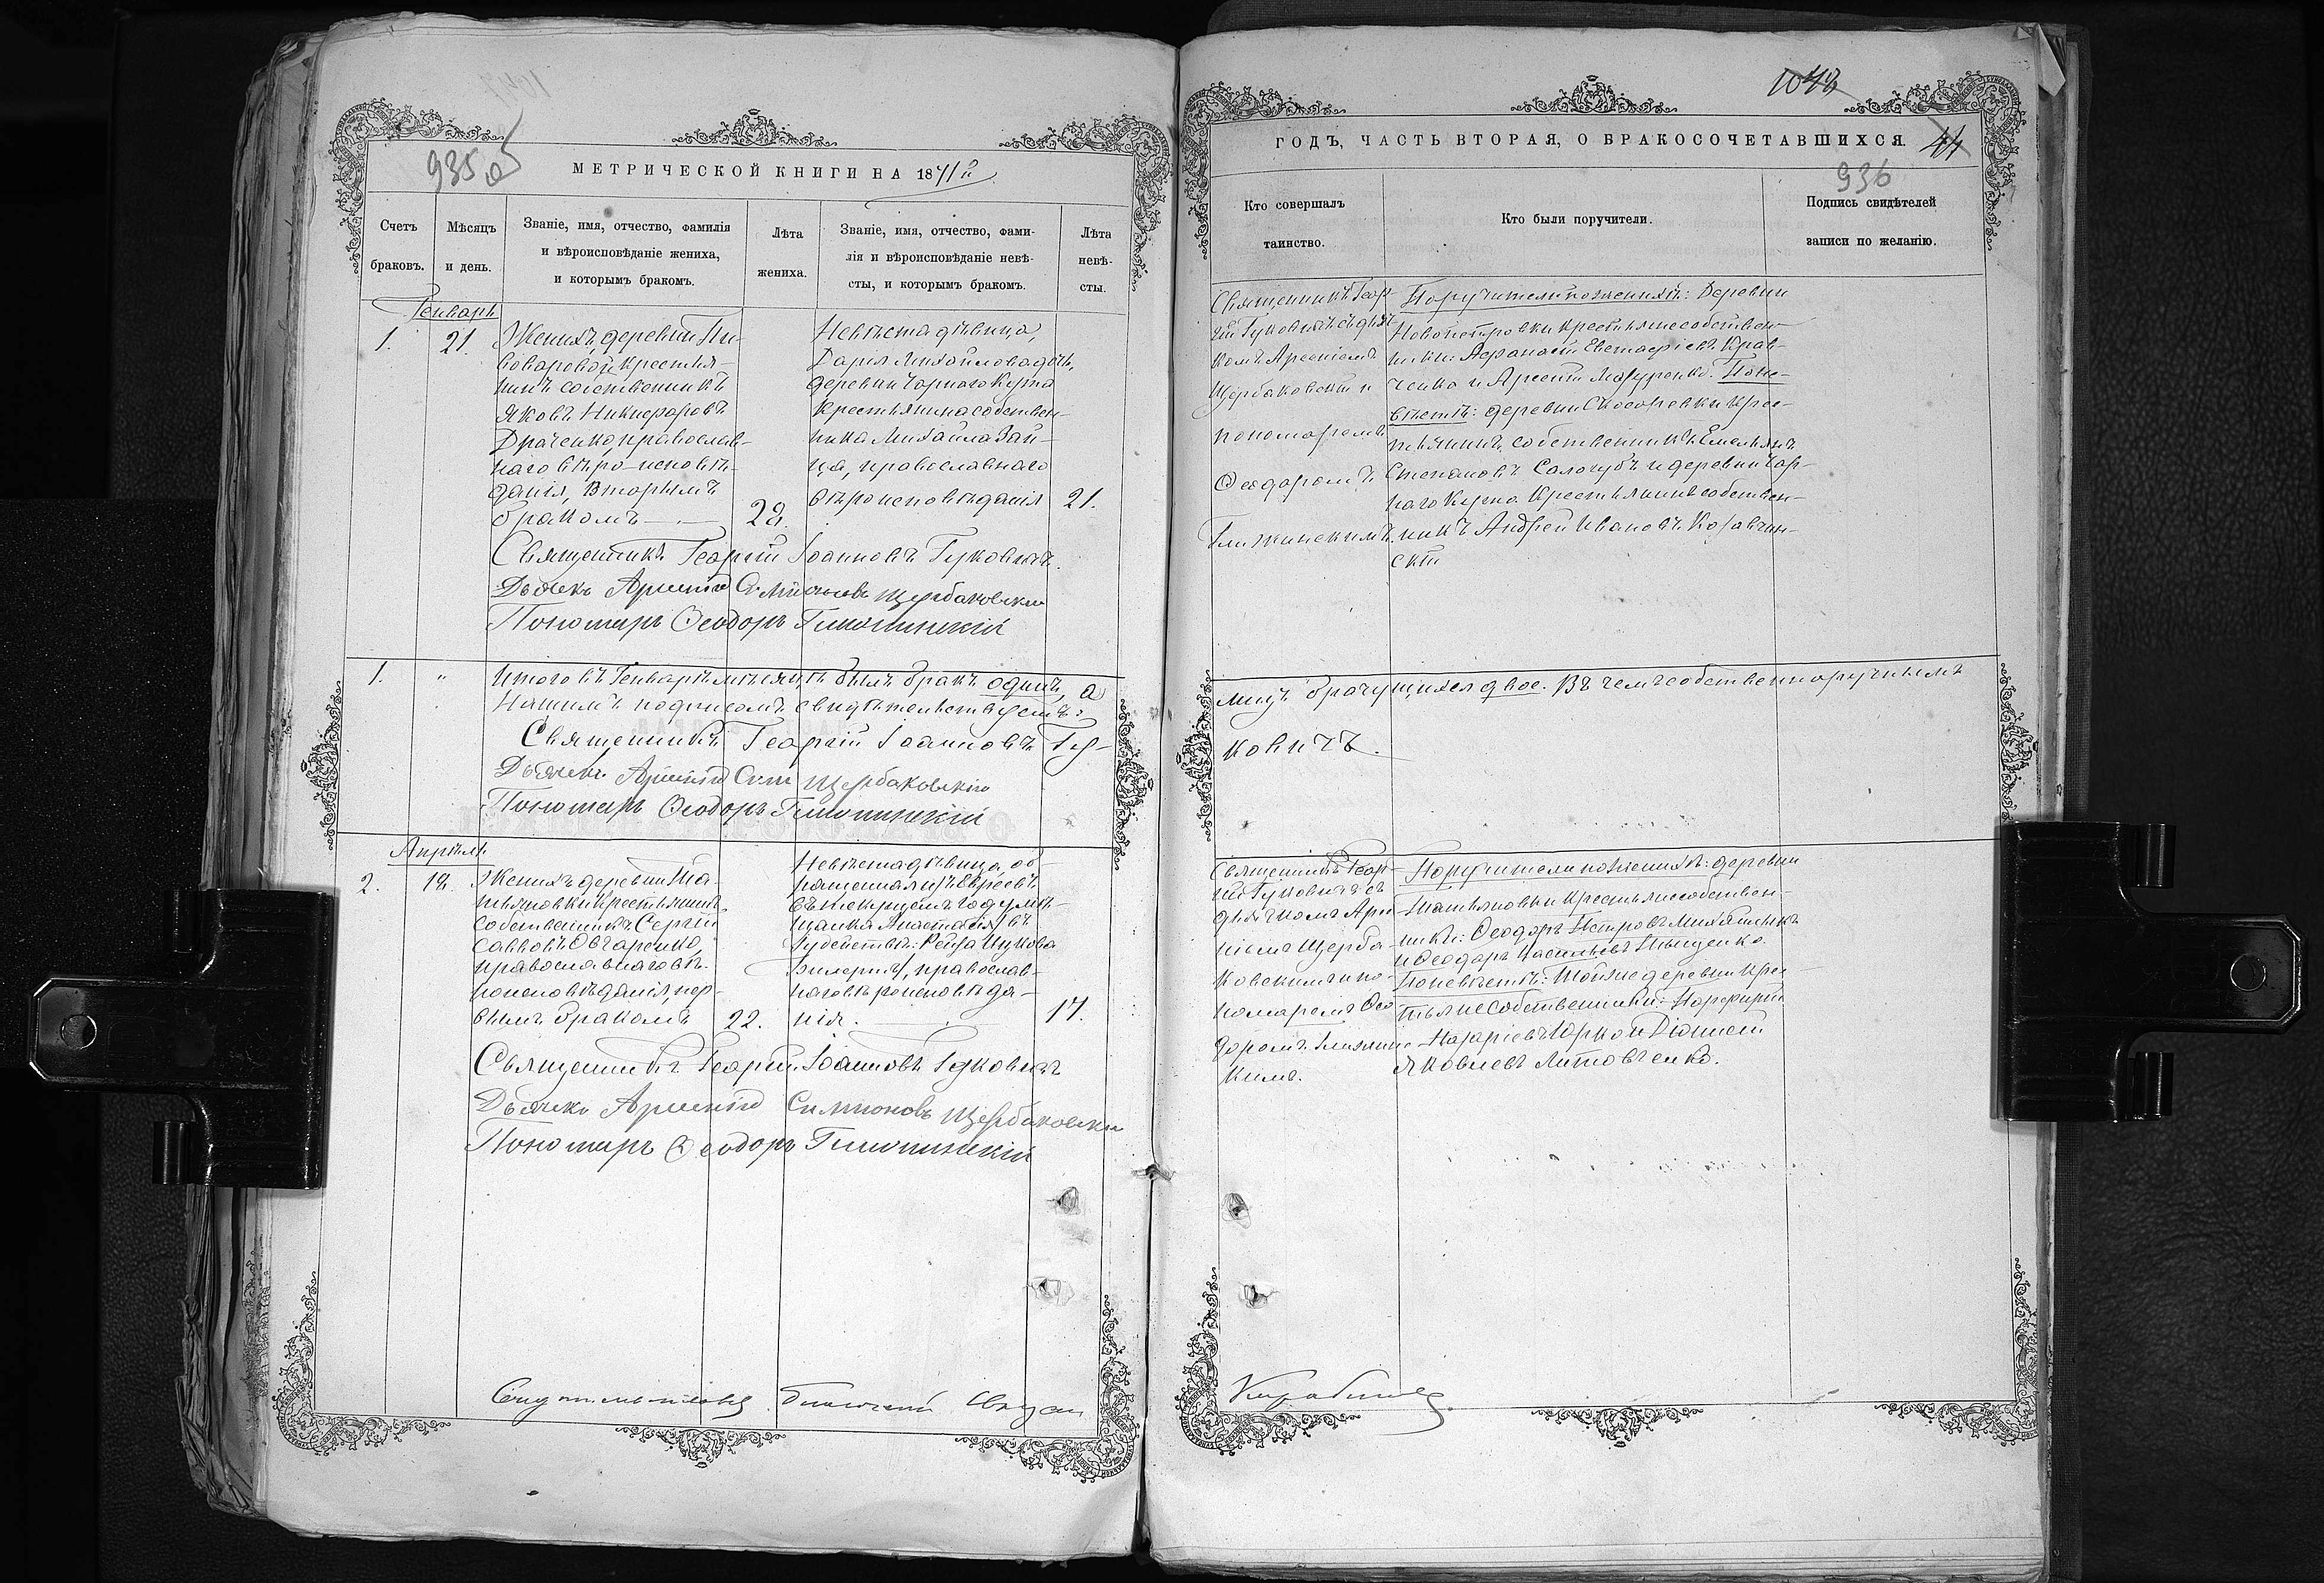 935 об
МЕТРИЧЕСКОЙ КНИГИ НА 1871й
Счетъ
браковъ.
Мѣсяцъ
и день.
Званіе, имя, отчество, фамилія
и вѣроисповѣданіе жениха,
и которымъ бракомъ.
Лѣта
жениха.
Званіе, имя, отчество, фами-
лія и вѣроисповѣданіе невѣ-
сты, и которымъ бракомъ.
Лѣта
невѣ-
сты.
Генварь
1.
21.
Женихъ, деревни Пи-
воваровой крестья-
нинъ собственникъ
Яковъ Никифоровъ
Драченко, православ-
наго вѣро-исповѣ-
данія, вторымъ
бракомъ
28.
Невѣста дѣвица,
Дарія Михайлова дочь,
деревни Чорнаго Кута
крестьянина собствен-
ника Михаила Зай-
ца, православнаго
вѣроисповѣданія
21.
Священникъ Георгій Іоанновъ Гуковичъ.
Дьячекъ Арсеній Симіоновъ Щербаковскій
Пономарь Ѳеодоръ
1. " Итого въ Генварѣ мѣсяцѣ былъ бракъ одинъ, а
Нашимъ подписомъ свидѣтельствуемъ:
Священникъ Георгій Іоанновъ Гу-
Дьячекъ Арсеній Сим Щербаковскій
Пономарь Ѳеодоръ
Апрѣль
2.
18.
Женихъ деревни Та-
тьяновки крестьянинъ
собственникъ Сергій
Саввовъ Овчаренко,
православнаго вѣ-
роисповѣданія, пер-
вымъ бракомъ
22.
Невѣста дѣвица, об-
ращенная изъ Евреевъ
въ текущемъ году мѣ-
щанка Анастасія /въ
Іудействѣ: Рейза Ицкова
православ-
наго вѣроисповѣда-
нія.
17.
Священникъ Георгій Іоанновъ Гуковичъ
Дьячекъ Арсеній Симіоновъ Щербаковскій
Пономарь Ѳеодоръ
1048
ГОДЪ, ЧАСТЬ ВТОРАЯ, О БРАКОСОЧЕТАВШИХСЯ.
44
936
Кто совершалъ
таинство.
Кто были поручители.
Подпись свидѣтелей
записи по желанію.
Священникъ Геор-
гій Гуковичъ съ дьяч-
комъ Арсеніемъ
Щербаковскій и
пономаремъ
Ѳеодоромъ
Поручители по женихѣ: Деревни
Новопетровки крестьяне собствен-
ники: Аѳанасій Евстафіевъ Крав-
ченко и Арсеній Мазуренко. По не-
вѣстѣ: деревни Скосоревки крес-
тьянинъ собственникъ Емельянъ
Степановъ Сологубъ и деревни Чор-
наго Кута крестьянинъ собствен-
никъ Андрей Ивановъ
скій
лицъ брачущихся двое. Въ чемъ собственноручнымъ
ковичъ.
Священникъ Геор-
гій Гуковичъ съ
дьячкомъ Арсе-
ніемъ Щерба-
ковскимъ и по-
номаремъ Ѳео-
доромъ
кимъ.
Поручители по женихѣ: деревни
Татьяновки крестьяне собствен-
ники: Ѳеодоръ Петровъ
и Ѳеодоръ Васильевъ
По невѣстѣ: той же деревни крес-
тьяне собственники: Порфирій
Назаріевъ Юрко и Діонисій
Яковлевъ Литовченко.